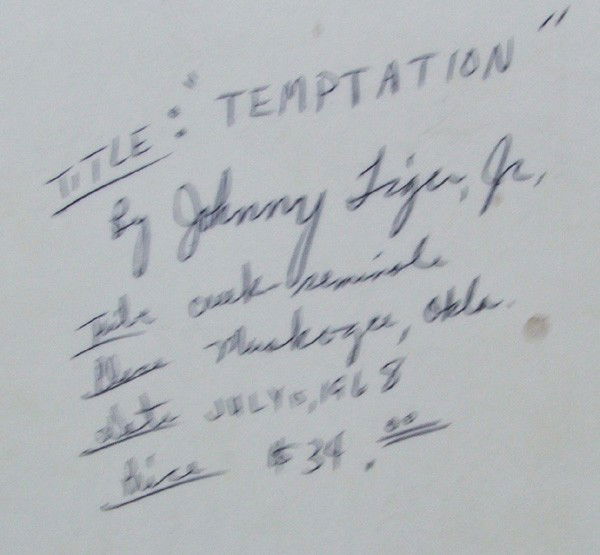 TITLE: "TEMPTATION"
By Johnny Tiger, Jr,
Tribe creek-seminole
Place Muskogee, Okla.
date JULY , 1968
Price $34.00